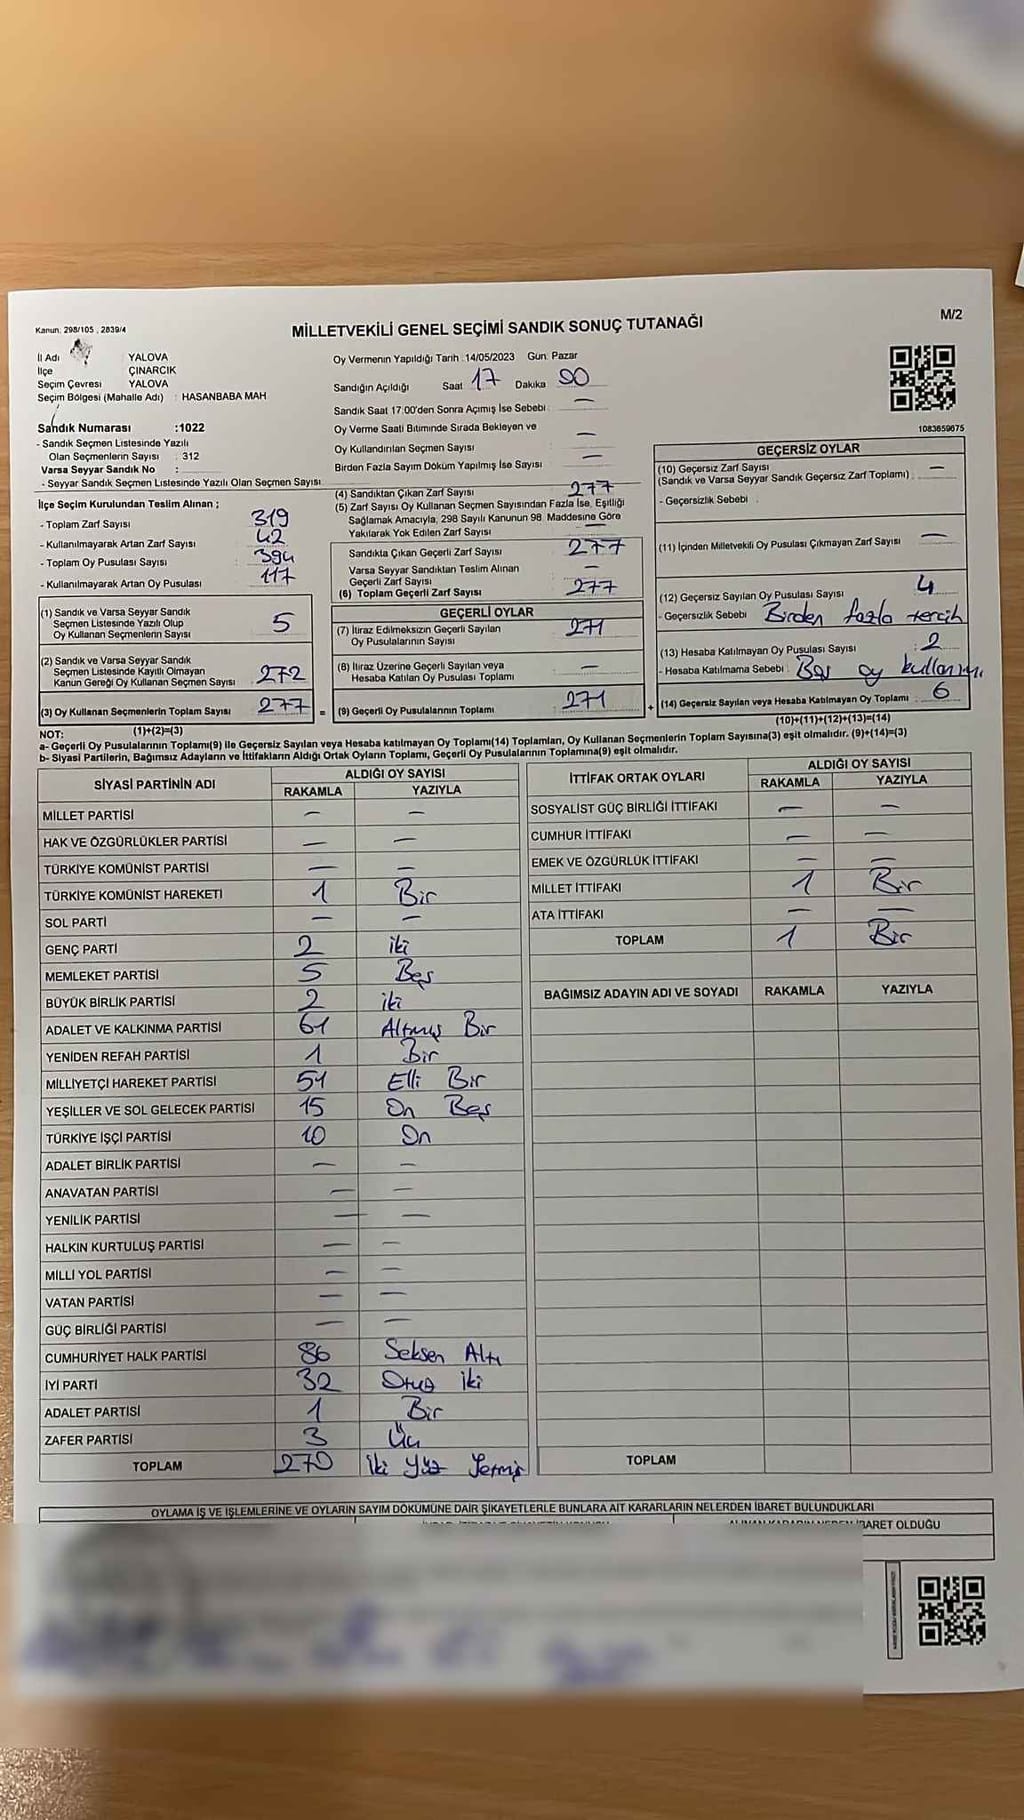 Kanun: 298/105 , 2839/4
MİLLETVEKİLİ GENEL SEÇİMİ SANDIK SONUÇ TUTANAĞI
M/2
İl Adı YALOVA
İlçe ÇINARCIK
Seçim Çevresi YALOVA
Seçim Bölgesi (Mahalle Adı) : HASANBABA MAH
Sandık Numarası :1022
- Sandık Seçmen Listesinde Yazılı
Olan Seçmenlerin Sayısı : 312
Varsa Seyyar Sandık No :
- Seyyar Sandık Seçmen Listesinde Yazılı Olan Seçmen Sayısı
Oy Vermenin Yapıldığı Tarih :14/05/2023 Gün: Pazar
Sandığın Açıldığı Saat 17 Dakika 00
Sandık Saat 17:00'den Sonra Açımış İse Sebebi : —
Oy Verme Saati Bitiminde Sırada Bekleyen ve
Oy Kullandırılan Seçmen Sayısı —
Birden Fazla Sayım Döküm Yapılmış İse Sayısı —
1083659675
İlçe Seçim Kurulundan Teslim Alınan ;
- Toplam Zarf Sayısı 319
- Kullanılmayarak Artan Zarf Sayısı 42
- Toplam Oy Pusulası Sayısı 394
- Kullanılmayarak Artan Oy Pusulası 117
(1) Sandık ve Varsa Seyyar Sandık
Seçmen Listesinde Yazılı Olup
Oy Kullanan Seçmenlerin Sayısı 5
(2) Sandık ve Varsa Seyyar Sandık
Seçmen Listesinde Kayıtlı Olmayan
Kanun Gereği Oy Kullanan Seçmen Sayısı 272
(3) Oy Kullanan Seçmenlerin Toplam Sayısı 277 =
(4) Sandıktan Çıkan Zarf Sayısı 277
(5) Zarf Sayısı Oy Kullanan Seçmen Sayısından Fazla İse, Eşitliği
Sağlamak Amacıyla, 298 Sayılı Kanunun 98. Maddesine Göre
Yakılarak Yok Edilen Zarf Sayısı —
Sandıkta Çıkan Geçerli Zarf Sayısı 277
Varsa Seyyar Sandıktan Teslim Alınan
Geçerli Zarf Sayısı —
(6) Toplam Geçerli Zarf Sayısı 277
GEÇERLİ OYLAR
(7) İtiraz Edilmeksizin Geçerli Sayılan
Oy Pusulalarının Sayısı 271
(8) İtiraz Üzerine Geçerli Sayılan veya
Hesaba Katılan Oy Pusulası Toplamı —
(9) Geçerli Oy Pusulalarının Toplamı 271 +
GEÇERSİZ OYLAR
(10) Geçersiz Zarf Sayısı —
(Sandık ve Varsa Seyyar Sandık Geçersiz Zarf Toplamı)
- Geçersizlik Sebebi :
(11) İçinden Milletvekili Oy Pusulası Çıkmayan Zarf Sayısı —
(12) Geçersiz Sayılan Oy Pusulası Sayısı : 4
- Geçersizlik Sebebi : Birden fazla tercih
(13) Hesaba Katılmayan Oy Pusulası Sayısı : 2
- Hesaba Katılmama Sebebi : Boş oy kullanım.
(14) Geçersiz Sayılan veya Hesaba Katılmayan Oy Toplamı : 6
(1)+(2)=(3)
(10)+(11)+(12)+(13)=(14)
NOT:
a- Geçerli Oy Pusulalarının Toplamı(9) ile Geçersiz Sayılan veya Hesaba katılmayan Oy Toplamı(14) Toplamları, Oy Kullanan Seçmenlerin Toplam Sayısına(3) eşit olmalıdır. (9)+(14)=(3)
b- Siyasi Partilerin, Bağımsız Adayların ve İttifakların Aldığı Ortak Oyların Toplamı, Geçerli Oy Pusulalarının Toplamına(9) eşit olmalıdır.
SİYASİ PARTİNİN ADI ALDIĞI OY SAYISI
RAKAMLA YAZIYLA
MİLLET PARTİSİ — —
HAK VE ÖZGÜRLÜKLER PARTİSİ — —
TÜRKİYE KOMÜNİST PARTİSİ — —
TÜRKİYE KOMÜNİST HAREKETİ 1 Bir
SOL PARTİ — —
GENÇ PARTİ 2 iki
MEMLEKET PARTİSİ 5 Beş
BÜYÜK BİRLİK PARTİSİ 2 iki
ADALET VE KALKINMA PARTİSİ 61 Altmış Bir
YENİDEN REFAH PARTİSİ 1 Bir
MİLLİYETÇİ HAREKET PARTİSİ 51 Elli Bir
YEŞİLLER VE SOL GELECEK PARTİSİ 15 On Beş
TÜRKİYE İŞÇİ PARTİSİ 10 On
ADALET BİRLİK PARTİSİ — —
ANAVATAN PARTİSİ — —
YENİLİK PARTİSİ — —
HALKIN KURTULUŞ PARTİSİ — —
MİLLİ YOL PARTİSİ — —
VATAN PARTİSİ — —
GÜÇ BİRLİĞİ PARTİSİ — —
CUMHURİYET HALK PARTİSİ 86 Seksen Altı
İYİ PARTİ 32 Otuz iki
ADALET PARTİSİ 1 Bir
ZAFER PARTİSİ 3 Üç
TOPLAM 270 iki Yüz Yetmiş
İTTİFAK ORTAK OYLARI ALDIĞI OY SAYISI
RAKAMLA YAZIYLA
SOSYALİST GÜÇ BİRLİĞİ İTTİFAKI — —
CUMHUR İTTİFAKI — —
EMEK VE ÖZGÜRLÜK İTTİFAKI — —
MİLLET İTTİFAKI 1 Bir
ATA İTTİFAKI — —
TOPLAM 1 Bir
BAĞIMSIZ ADAYIN ADI VE SOYADI RAKAMLA YAZIYLA
TOPLAM
OYLAMA İŞ VE İŞLEMLERİNE VE OYLARIN SAYIM DÖKÜMÜNE DAİR ŞİKAYETLERLE BUNLARA AİT KARARLARIN NELERDEN İBARET BULUNDUKLARI
İBARET OLDUĞU